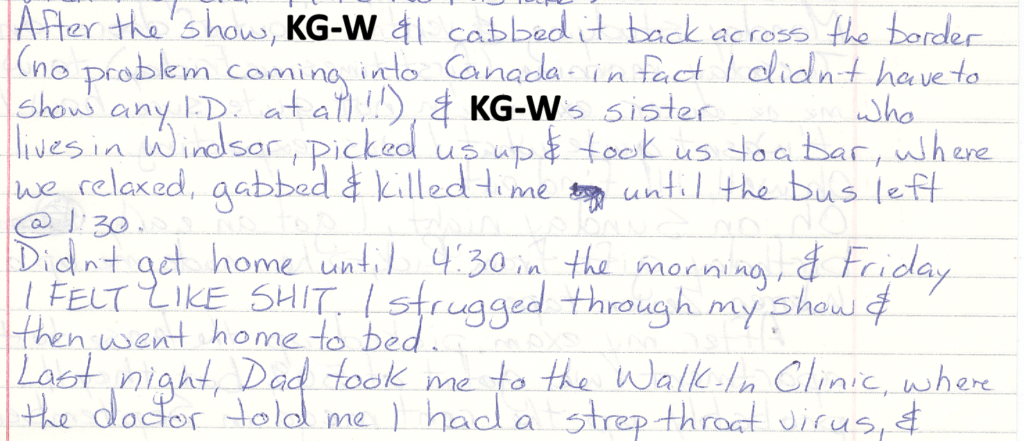 After the show, KG-W &I cabbed it back across the border
(no problem coming into Canada - in fact I didn't have to
show any I.D. at all!!), & KG-W's sister who
lives in Windsor, picked us up & took us to a bar, where
we relaxed, gabbed & killed time until the bus left
@ 1:30.
Didn't get home until 4:30 in the morning, & Friday
I FELT LIKE SHIT. I strugged through my show &
then went home to bed.
Last night, Dad took me to the Walk-In Clinic, where
the doctor told me I had a strep throat virus, &